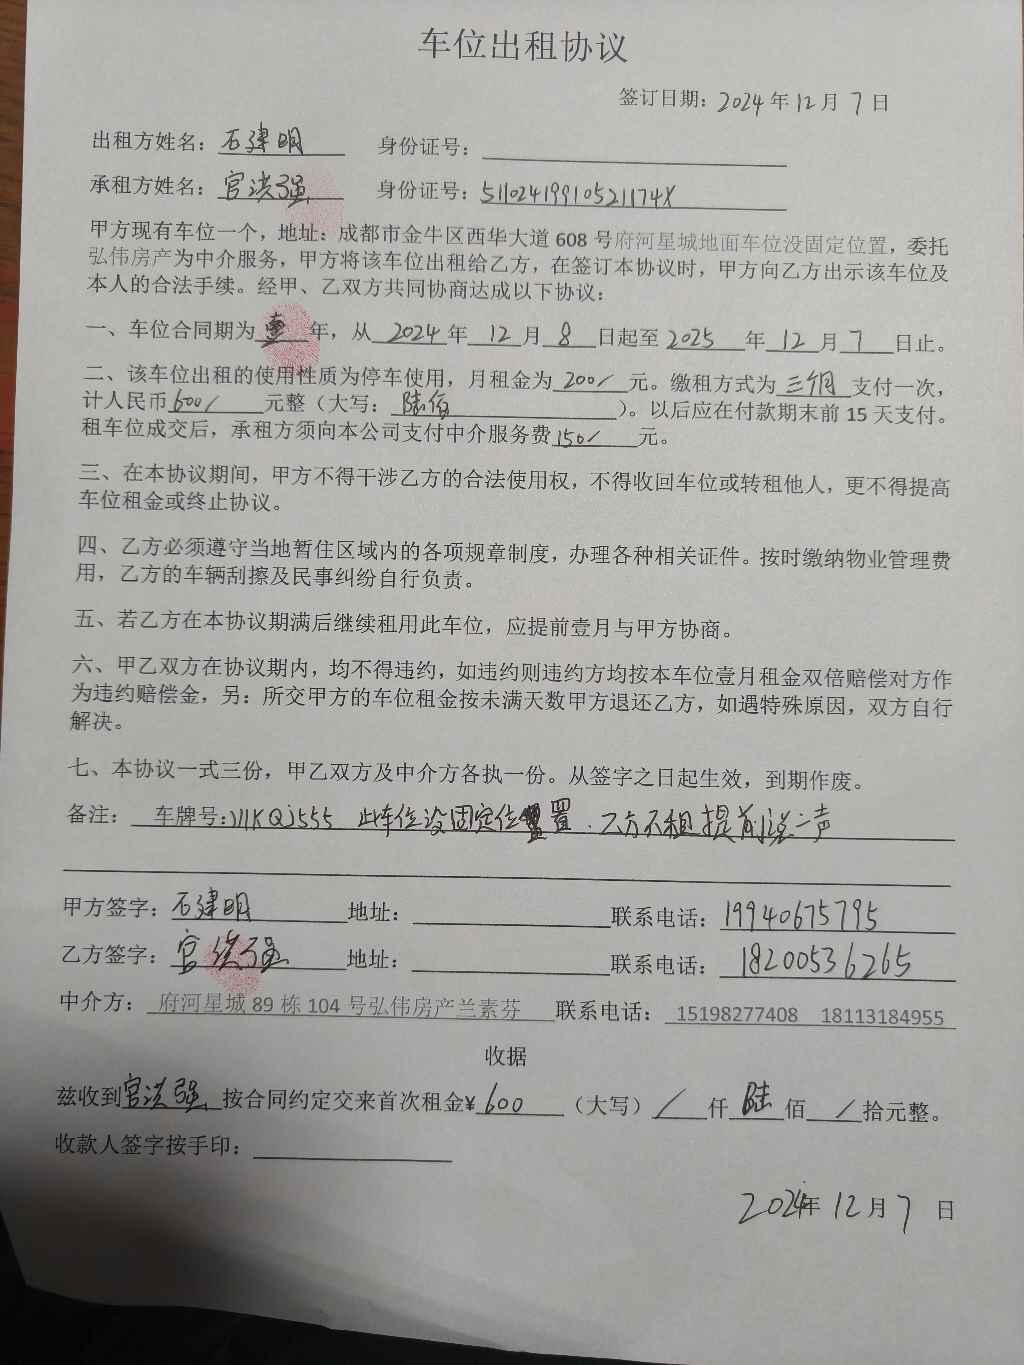 车位出租协议
签订日期：2024年12月7日
出租方姓名：石建明 身份证号：
承租方姓名：官洪强 身份证号：51102419910521174X
甲方现有车位一个，地址：成都市金牛区西华大道 608 号府河星城地面车位没固定位置，委托
弘伟房产为中介服务，甲方将该车位出租给乙方，在签订本协议时，甲方向乙方出示该车位及
本人的合法手续。经甲、乙双方共同协商达成以下协议：
一、车位合同期为壹年，从2024年12月8日起至2025年12月7日止。
二、该车位出租的使用性质为停车使用，月租金为200/元。缴租方式为三个月支付一次，
计人民币600/元整（大写：陆佰）。以后应在付款期末前 15 天支付。
租车位成交后，承租方须向本公司支付中介服务费150/元。
三、在本协议期间，甲方不得干涉乙方的合法使用权，不得收回车位或转租他人，更不得提高
车位租金或终止协议。
四、乙方必须遵守当地暂住区域内的各项规章制度，办理各种相关证件。按时缴纳物业管理费
用，乙方的车辆刮擦及民事纠纷自行负责。
五、若乙方在本协议期满后继续租用此车位，应提前壹月与甲方协商。
六、甲乙双方在协议期内，均不得违约，如违约则违约方均按本车位壹月租金双倍赔偿对方作
为违约赔偿金，另：所交甲方的车位租金按未满天数甲方退还乙方，如遇特殊原因，双方自行
解决。
七、本协议一式三份，甲乙双方及中介方各执一份。从签字之日起生效，到期作废。
备注：车牌号：川KQJ555 此车位没固定位置．乙方不租提前说一声
甲方签字：石建明 地址： 联系电话：19940675795
乙方签字：官洪强 地址： 联系电话：18200536265
中介方：府河星城 89 栋 104 号弘伟房产兰素芬 联系电话：15198277408 18113184955
收据
兹收到官洪强按合同约定交来首次租金¥600（大写）/仟陆佰/拾元整。
收款人签字按手印：
2024年12月7日